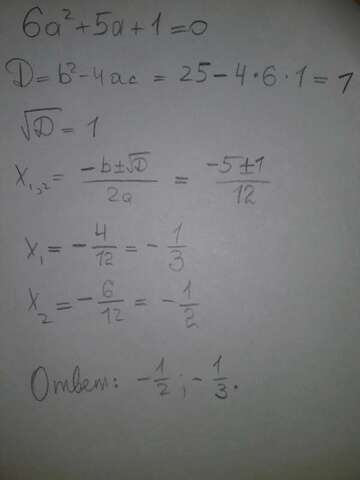 6a²+5a+1=0
D=b²-4ac = 25-4·6·1=1
√D=1
x₁,₂= (-b±√D)/2a = (-5±1)/12
x₁= -4/12 = -1/3
x₂= -6/12 = -1/2
Ответ: -1/2; -1/3.